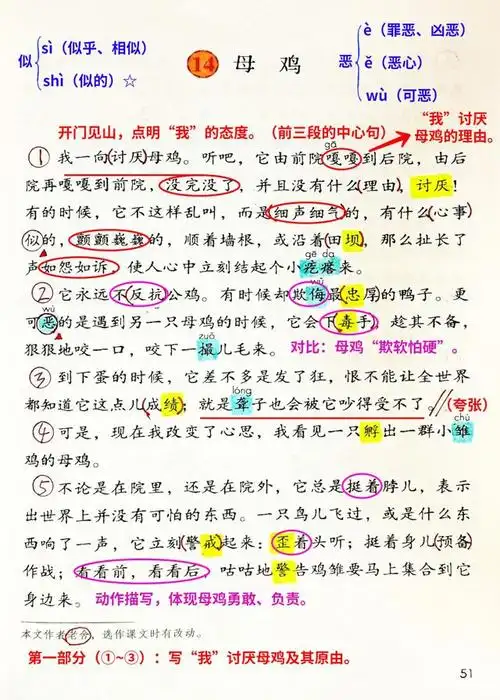 似 sì（似乎、相似）
shì（似的）☆
14 母鸡
恶 è（罪恶、凶恶）
ě（恶心）
wù（可恶）
开门见山，点明“我”的态度。（前三段的中心句）
“我”讨厌
母鸡的理由。
gā
①我一向讨厌母鸡。听吧，它由前院嘎嘎到后院，由后
院再嘎嘎到前院，没完没了，并且没有什么理由，讨厌！
有的时候，它不这样乱叫，而是细声细气的，有什么心事
似的，颤颤巍巍的，顺着墙根，或沿着田坝，那么扯长了
gē da
声如怨如诉，使人心中立刻结起个小疙瘩来。
②它永远不反抗公鸡。有时候却欺侮最忠厚的鸭子。更
wù
可恶的是遇到另一只母鸡的时候，它会下毒手，趁其不备，
zuǒ
狠狠地咬一口，咬下一撮儿毛来。
对比：母鸡“欺软怕硬”。
③到下蛋的时候，它差不多是发了狂，恨不能让全世界
lóng
都知道它这点儿成绩；就是聋子也会被它吵得受不了。//（夸张）
chú
④可是，现在我改变了心思，我看见一只孵出一群小雏
鸡的母鸡。
⑤不论是在院里，还是在院外，它总是挺着脖儿，表示
出世界上并没有可怕的东西。一只鸟儿飞过，或是什么东
西响了一声，它立刻警戒起来：歪着头听；挺着身儿预备
作战；看看前，看看后，咕咕地警告鸡雏要马上集合到它
身边来。
动作描写，体现母鸡勇敢、负责。
本文作者老舍，选作课文时有改动。
第一部分（①~③）：写“我”讨厌母鸡及其原由。
51